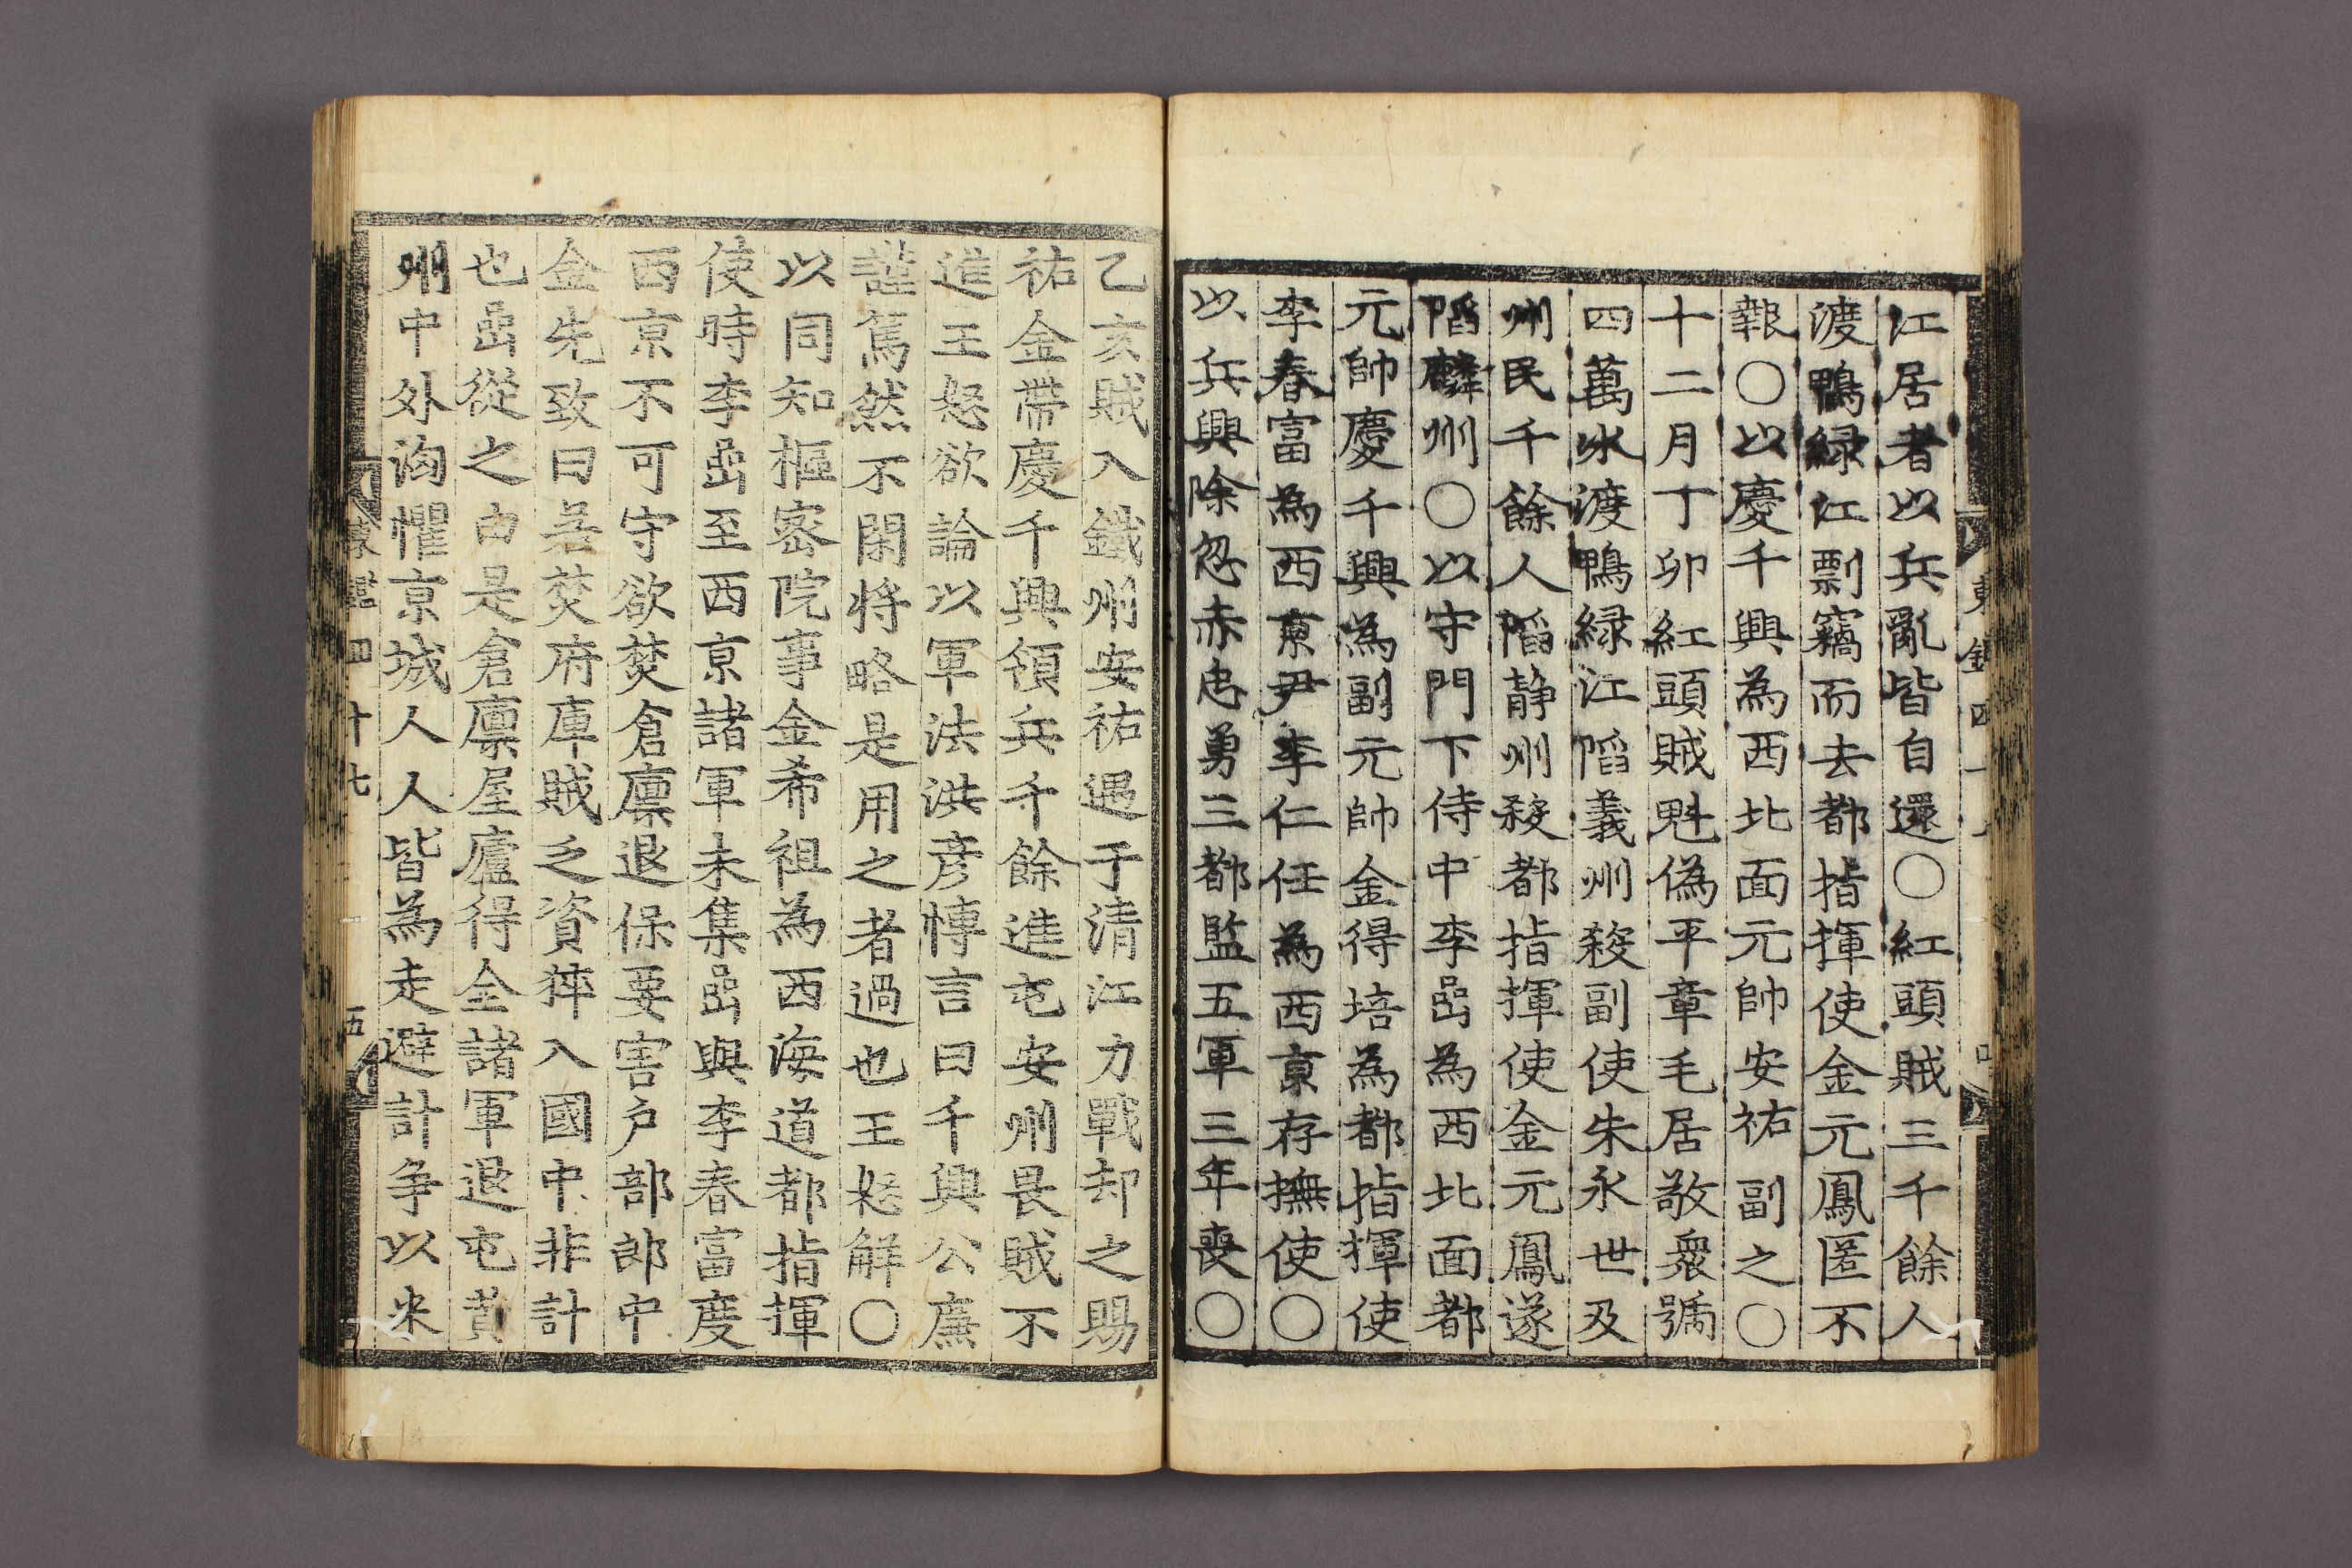 江居者以兵亂皆自還〇紅頭賊三千餘人
渡鴨綠江剽竊而去都指揮使金元鳳匿不
報〇以慶千興為西北面元帥安祐副之〇
十二月丁卯紅頭賊魁偽平章毛居敬衆號
四萬氷渡鴨綠江陷義州殺副使朱永世及
州民千餘人陷静州殺都指揮使金元鳳遂
陷麟州〇以守門下侍中李嵒為西北面都
元帥慶千興為副元帥金得培為都指揮使
李春富為西京尹李仁任為西京存撫使〇
以兵興除忽赤忠勇三都監五軍三年喪〇
乙亥賊入鐵州安祐遇于清江力戰却之賜
祐金帶慶千興領兵千餘進屯安州畏賊不
進王怒欲論以軍法洪彦愽言曰千興公廉
謹篤然不閑將略是用之者過也王怒解〇
以同知樞密院事金希祖為西海道都指揮
使時李嵒至西京諸軍未集嵒與李春富度
西京不可守欲焚倉廩退保要害户部郎中
金先致曰若焚府庫賊乏資猝入國中非計
也嵒從之由是倉廩屋廬得全諸軍退屯黃
州中外洶懼京城人人皆為走避計争以米
東鑑四十七
五